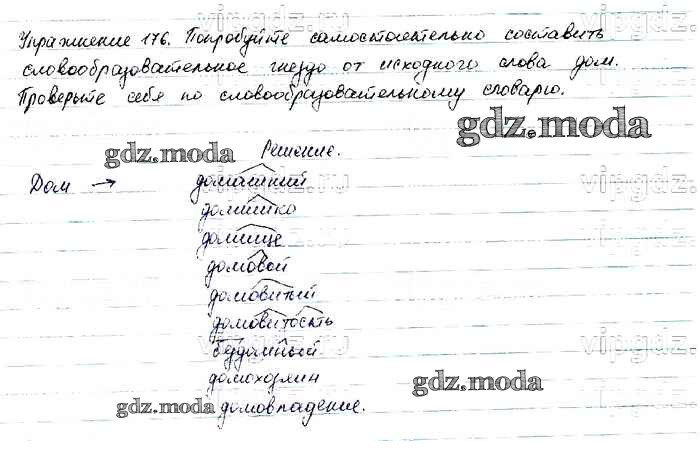 Упражнение 176. Попробуйте самостоятельно составить
словообразовательное гнездо от исходного слова дом.
Проверьте себя по словообразовательному словарю.
gdz.moda
gdz.moda
Решение.
vipgdz.ru
Дом → домашний
домишко
домище
домовой
домовитый
домовитость
бездомный
vipgdz.ru
домохозяин
gdz.moda
gdz.moda
домовладение.